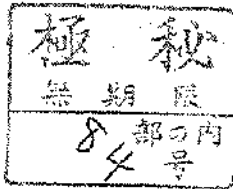 極秘
無期限
8部の内
4号